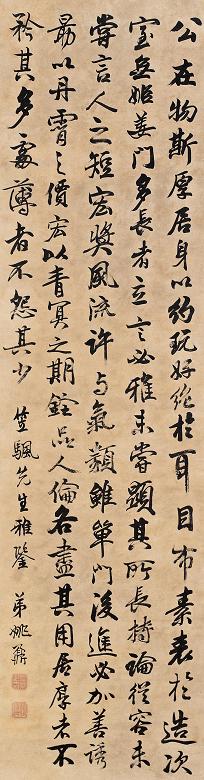 公在物斯厚居身以約玩好絕於耳目布素表於造次
室無姬姜門多長者立言必雅未嘗顯其所長持論從容未
嘗言人之短宏奬風流許与氣類雖單門後進必加善誘
勗以丹霄之價宏以青冥之期銓品人倫各盡其用居厚者不
矜其多處薄者不怨其少 笠颿先生雅鑒 弟姚鼐